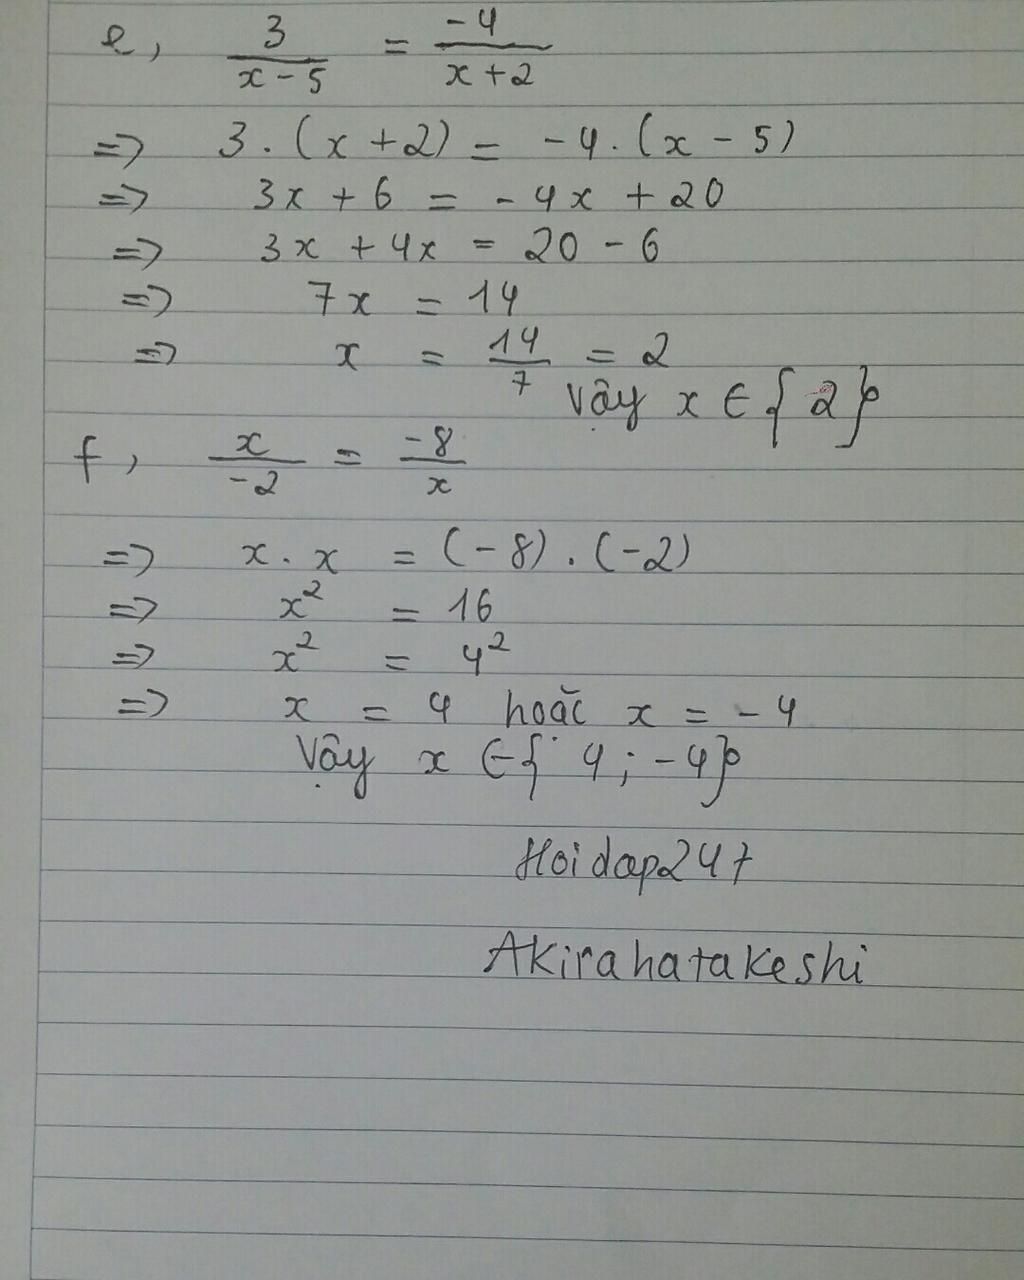 e, 3/(x-5) = -4/(x+2)
=> 3.(x+2) = -4.(x-5)
=> 3x+6 = -4x+20
=> 3x+4x = 20-6
=> 7x = 14
=> x = 14/7 = 2
Vậy x ∈ {2}
f, x/-2 = -8/x
=> x.x = (-8).(-2)
=> x² = 16
=> x² = 4²
=> x = 4 hoặc x = -4
Vậy x ∈ {4;-4}
Hoidap247
Akirahatakeshi